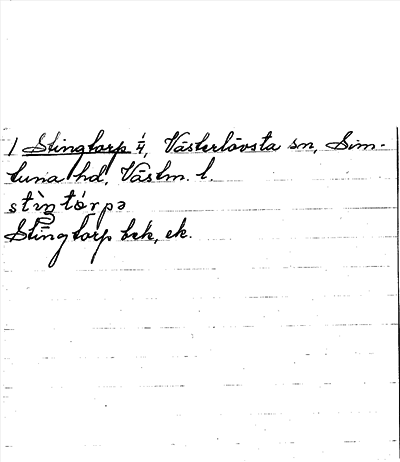 / Stingtorp 1/4, Västerlövsta sn, Sim-
tuna hd, Västm. l.
stìŋtórpə
Stingtorp bek, ek.